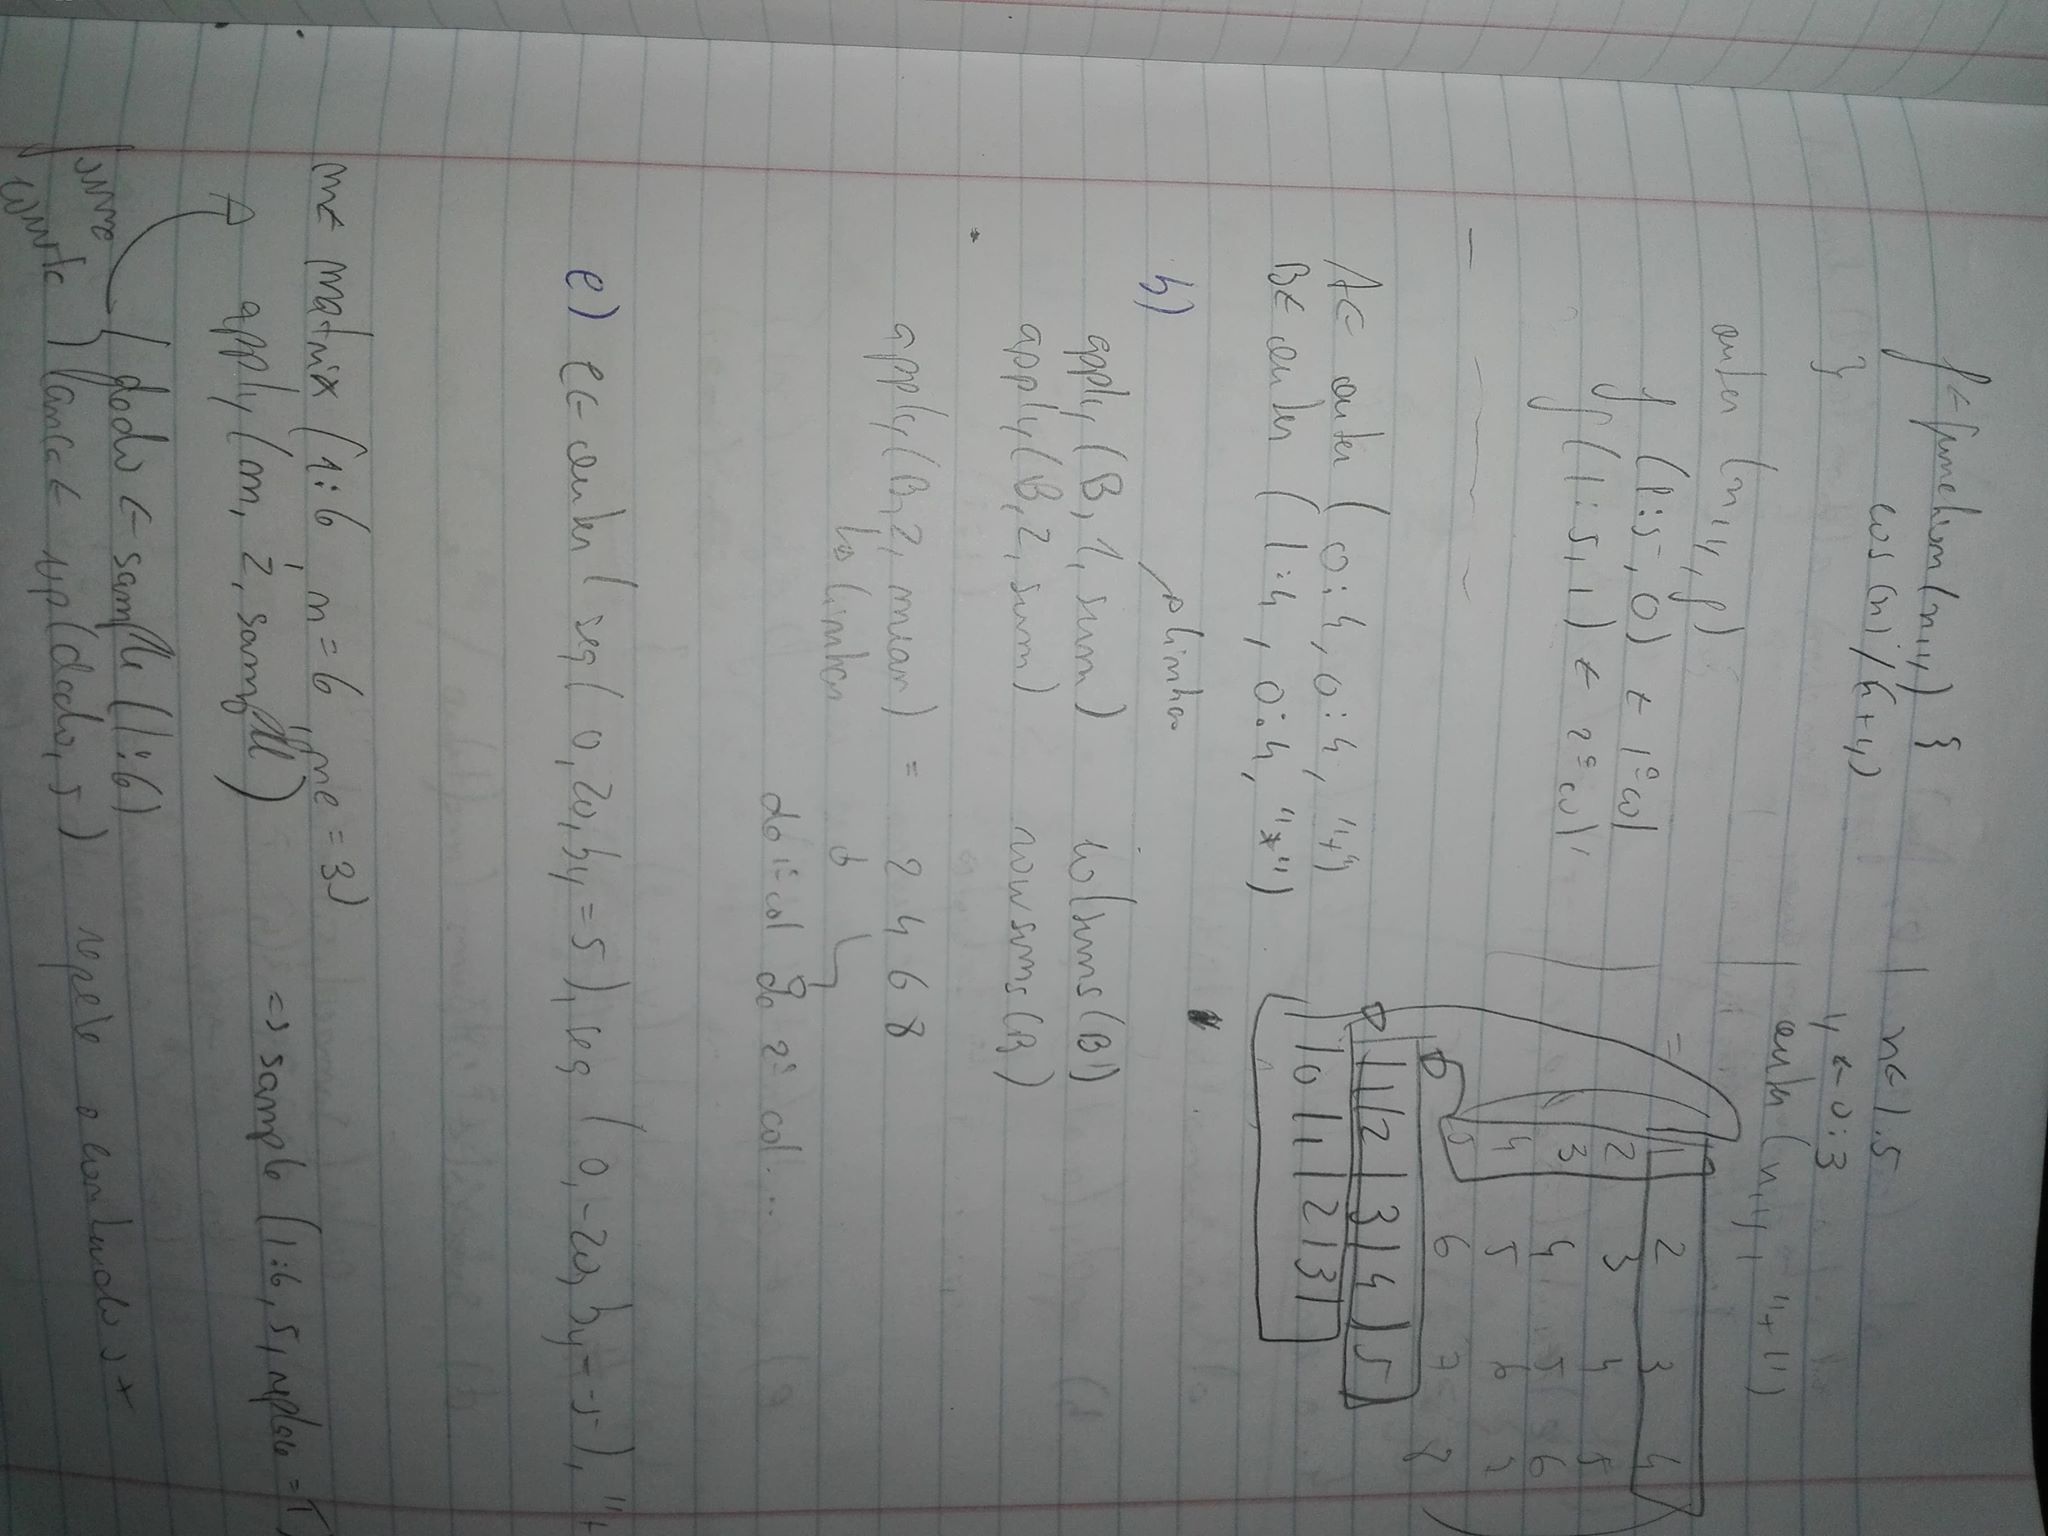 f ← function(x,y) {
cos(x)/(x+y)
}
outer (x,y,f)
f (1:5, 0) ← 1ª col
f (1:5, 1) ← 2ª col
x ← 1:5
y ← 0:3
outer (x,y, "+")
= 1 2 3 4
2 3 4 5
3 4 5 6
4 5 6 7
5 6 7 8
|1|2|3|4|5
|0|1|2|3|
A ← outer ( 0:4, 0:4, "+")
B ← outer ( 1:4, 0:4, "*")
b)
linhas
apply (B, 1, sum) colsums(B)
apply (B, 2, sum) rowsums(B)
apply (B, 2, mean) = 2 4 6 8
linhas
do 1ª col do 2ª col...
e) e ← outer ( seq( 0, 20, by=5), seq ( 0, -20, by=-5), "+
m ← matrix (1:6, n=6, nc=3)
apply (m, 2, sample) => sample (1:6, 5, replace=T
dado ← sample (1:6)
lanc ← rep(dado, 5) repete o conteudo 5x